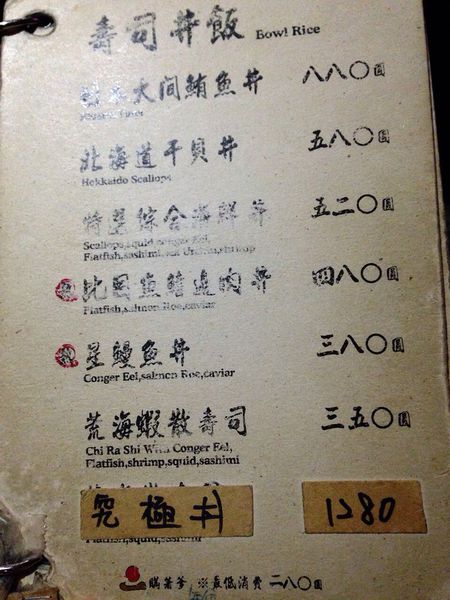 壽司丼飯 Bowl Rice
大间鮪魚丼 八八〇圓
北海道干貝丼 五八〇圓
Hokkaido Scallops
特選綜合海鮮丼 五二〇圓
Scallops,squid conger Eel,
Flatfish,sashimi,shrimp
比目魚鰭邊肉丼 四八〇圓
Flatfish,salmon Roe,caviar
星鰻魚丼 三八〇圓
Conger Eel,salmon Roe,caviar
荒海蝦散壽司 三五〇圓
Chi Ra Shi With Conger Eel,
Flatfish,shrimp,squid,sashimi
究極丼 1280
Flatfish,squid,sashimi
※最低消費 二八〇圓